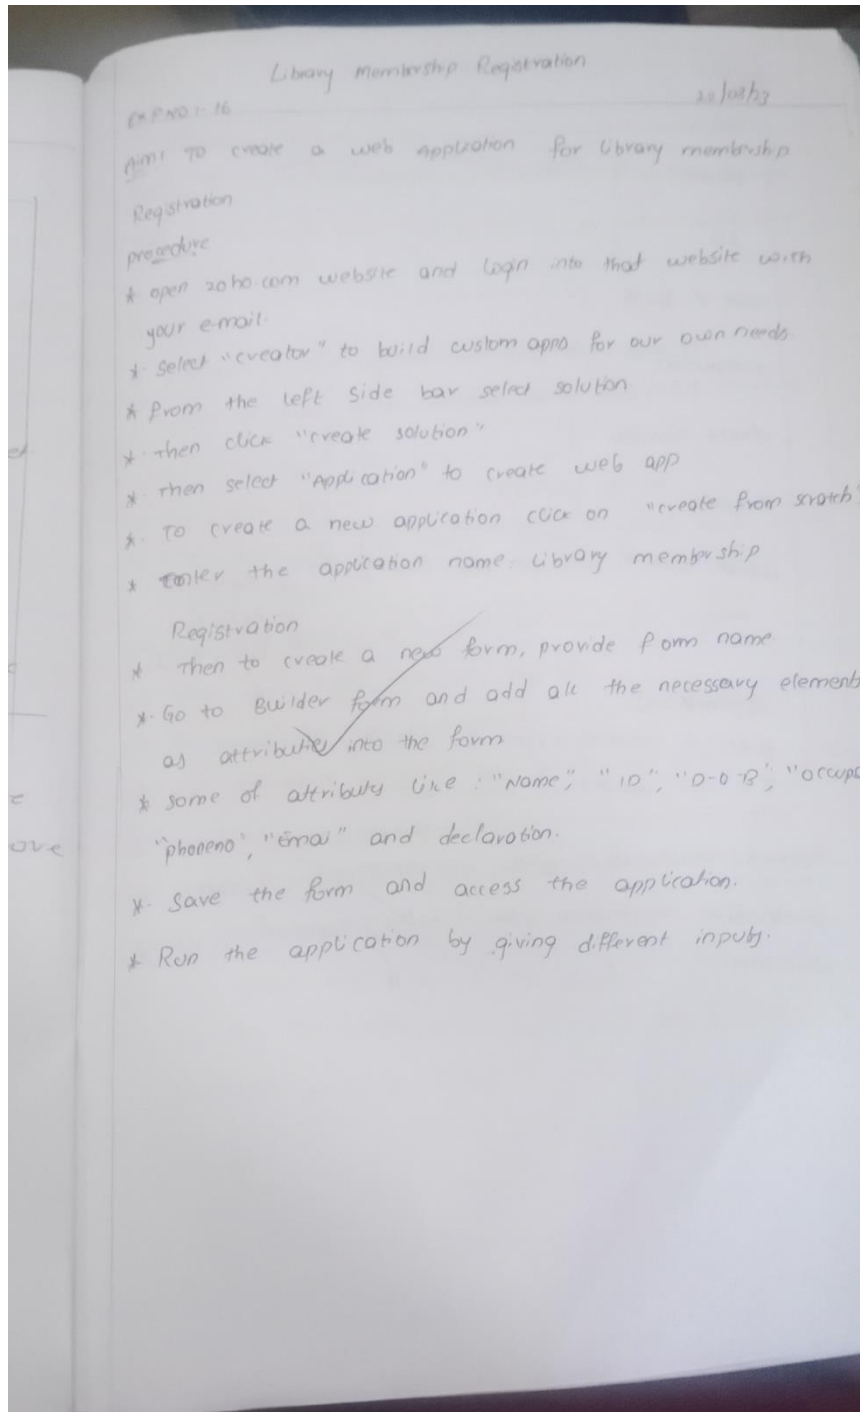 Library Membership Registration
EXP NO:- 16
Aim: To create a web application for library membership
Registration
procedure
* open zoho.com website and login into that website with
your e-mail.
* Select "creator" to build custom apps for our own needs
* From the left side bar select solution
* Then click "create solution"
* Then select "Application" to create web app
* To create a new application click on "create from scratch"
* Enter the application name library membership
Registration
* Then to create a new form, provide form name
* Go to Builder form and add all the necessary elements
as attributes into the form
* some of attributes like : "Name", "ID", "D-O-B", "occup
"phoneno", "Emai" and declaration.
* Save the form and access the application.
* Run the application by giving different inputs.
ove